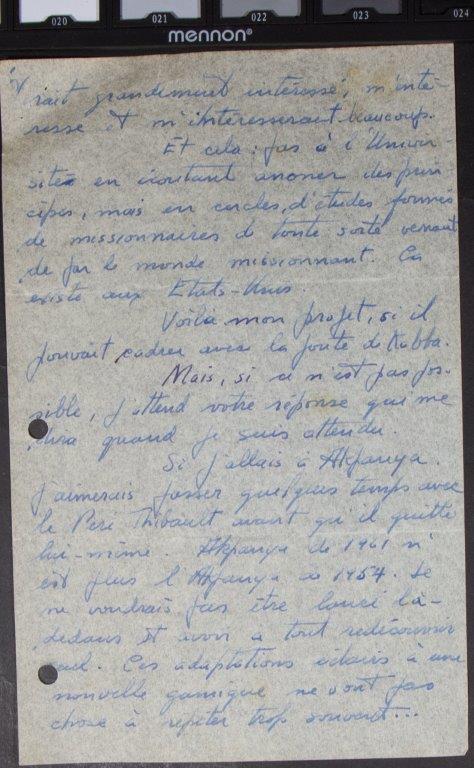 020 021 022 023 024
mennon®
rait grandement intéressé, m'inté-
resse et m'intéresserait beaucoup.
Et cela: pas à l'Univer-
sité en écoutant anoner des prin-
cipes, mais en cercles d'études formés
de missionnaires de toute sorte venant
de par le monde missionnant. Ça
existe aux Etats-Unis.
Voilà mon projet, si il
pouvait cadrer avec la Kabba.
Mais, si ce n'est pas pos-
sible, j'attend votre réponse qui me
dira quand je suis attendu.
Si j'allais à Akpanya.
J'aimerais passer quelques temps avec
le Père Thibault avant qu'il quitte
lui-même. Akpanya de 1961 n'
est plus l'Akpanya de 1954. Je
ne voudrais pas être lancé là-
dedans et avoir à tout redécouvrir
seul. Ces adaptations à une
nouvelle ne sont pas
chose à répéter trop souvent...